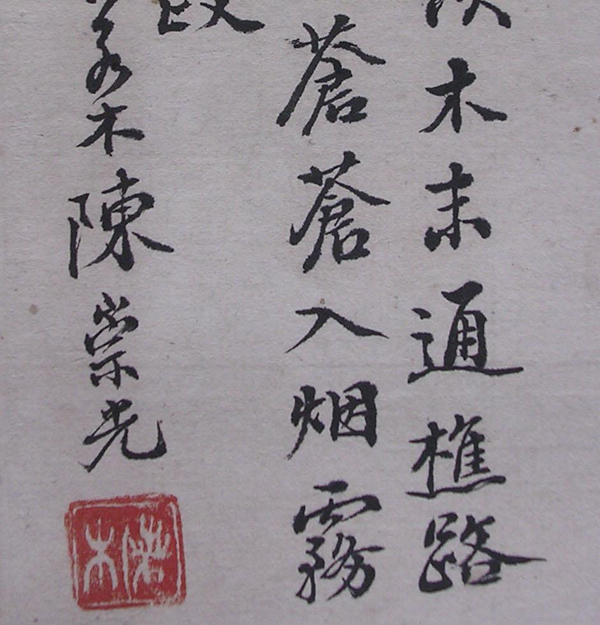 木末通樵路
蒼蒼入烟霧
若木陳崇光
若木